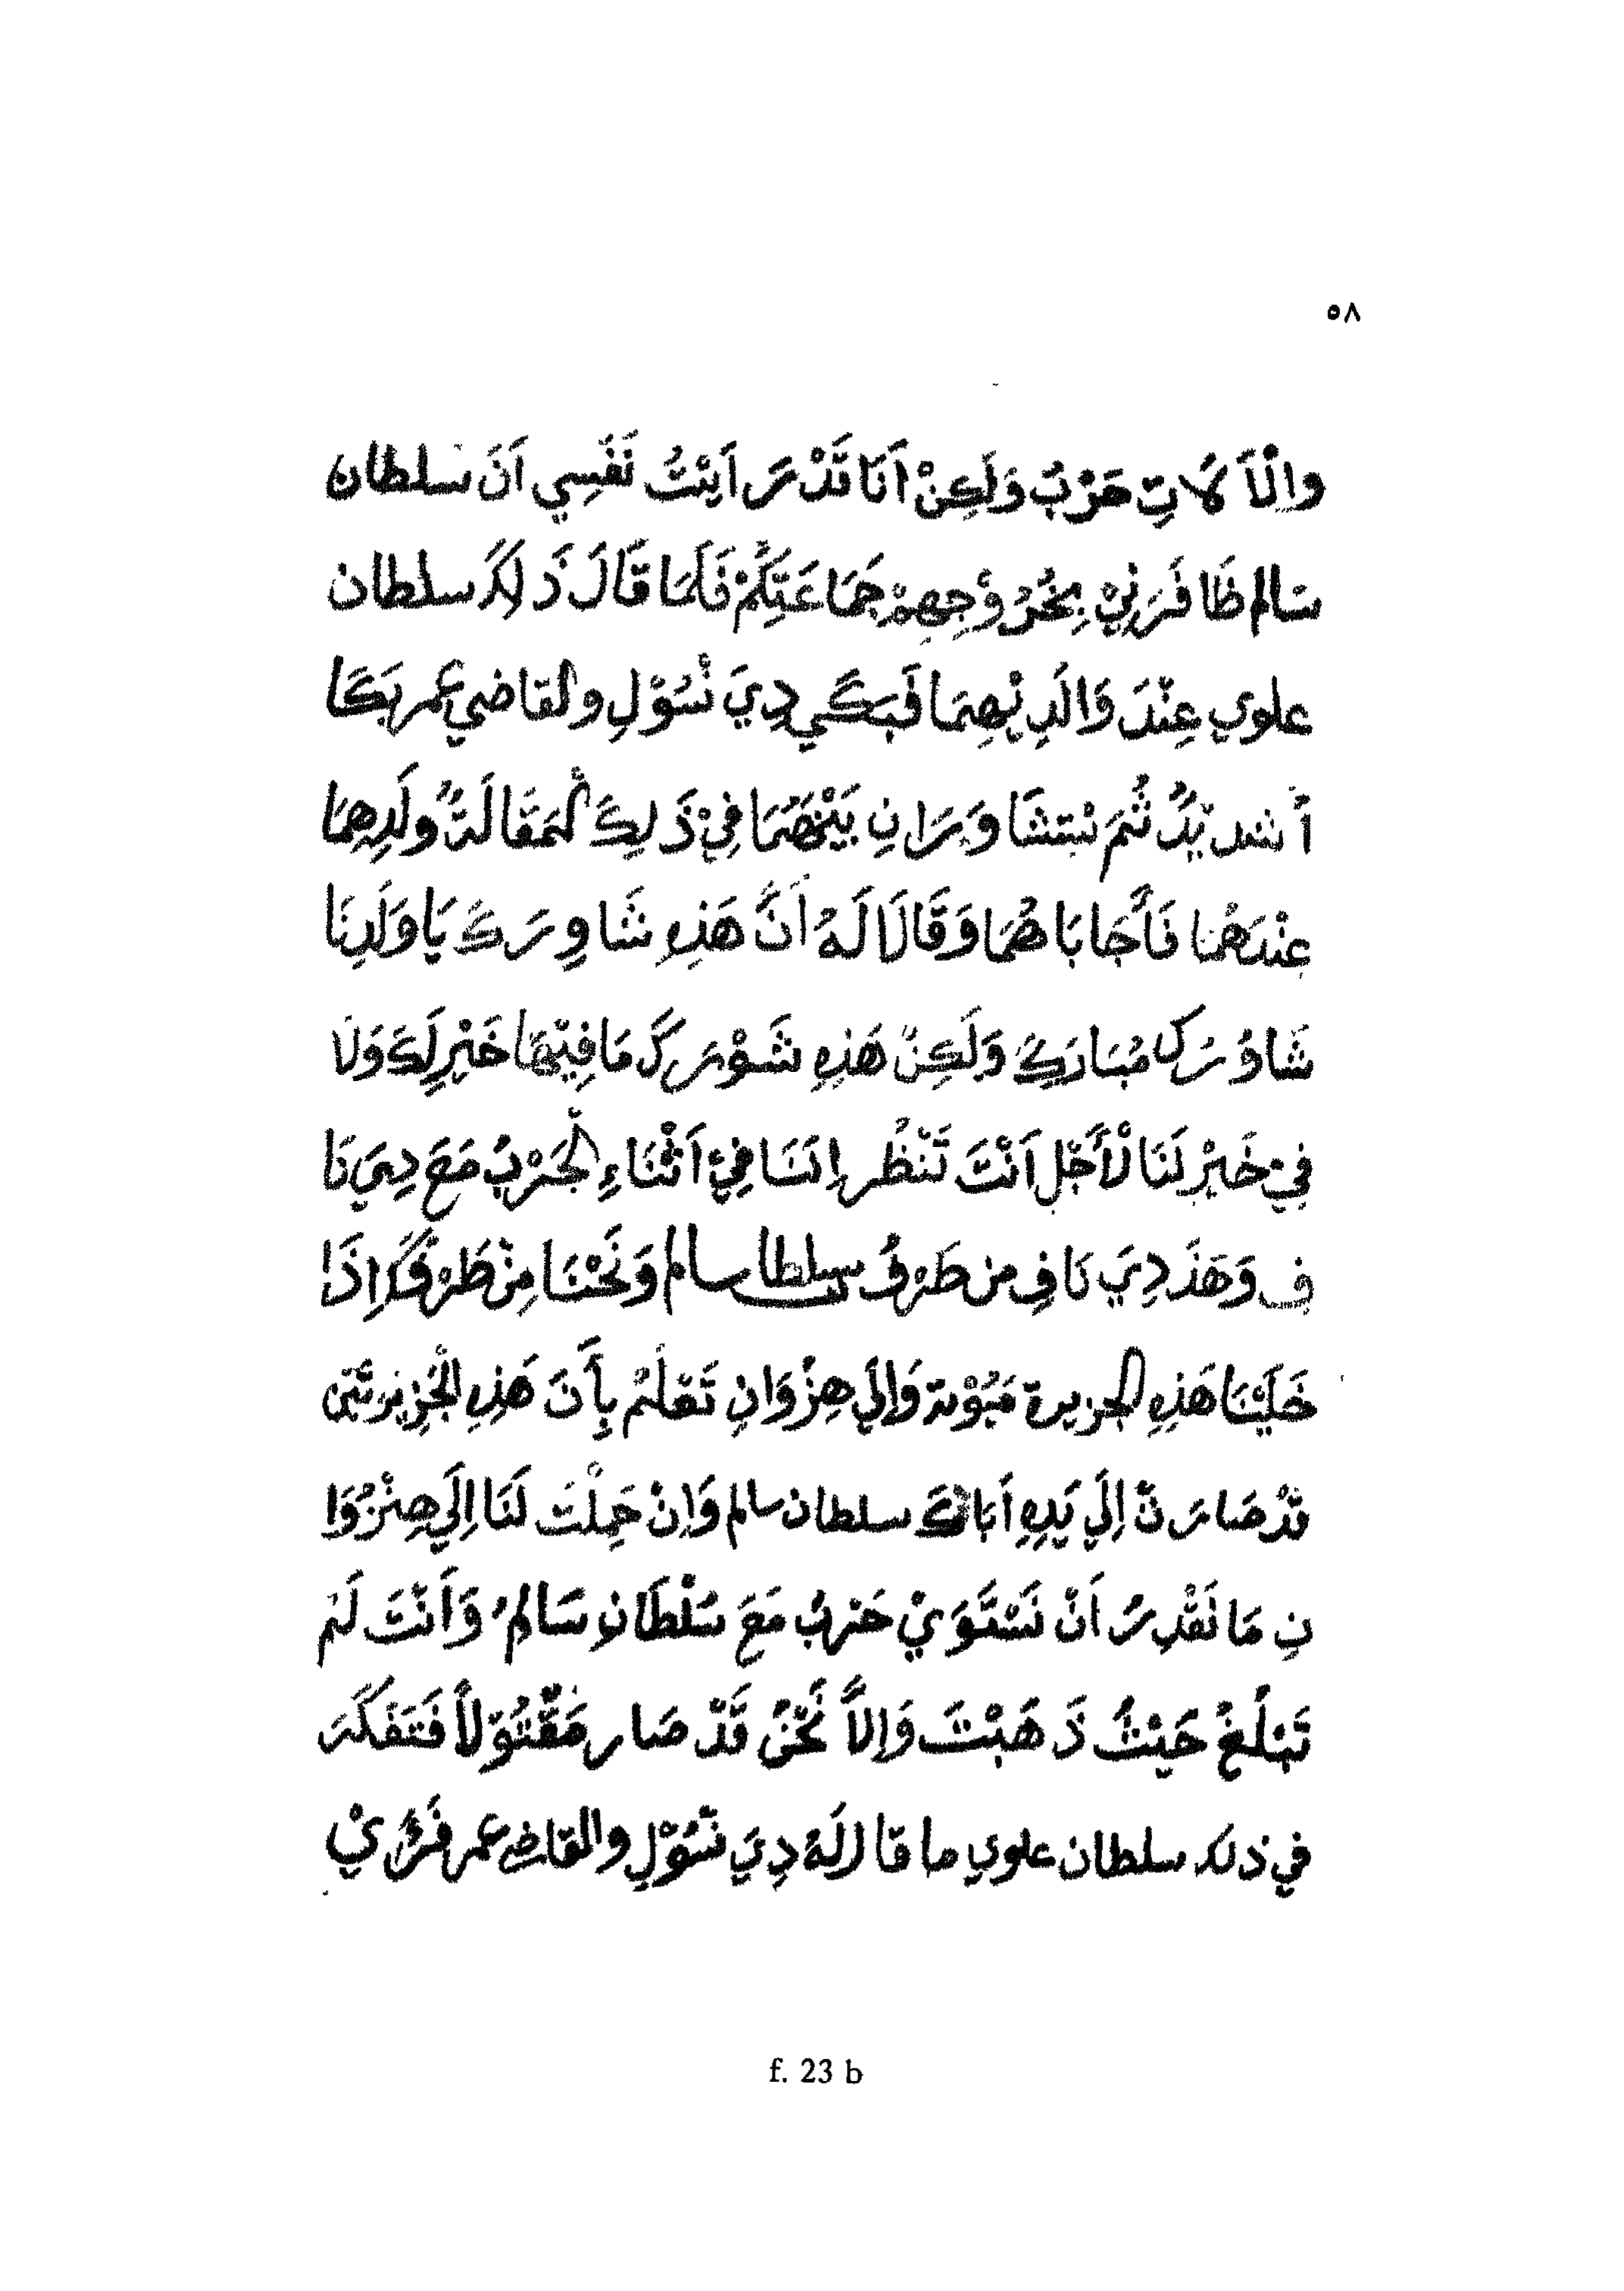 ٥٨
وإلّا لَاتِ حَرْبُ وَلَكِنْ أَنَا قَدْ رَأَيْتُ نَفْسِي أَنَ سلطان
سَالم ظَافَرَنِيْ بِخُرُوْجِهِمْ جَمَاعَتِكُمْ فَلَمَا قَالَ ذَلِكَ سلطان
علوي عِنْدَ وَالَدِيْهِمَا فَبَكَي دِيَ نْسُوْلِ والقاضي عمر بَكَا
أً شديْدُ ثُمَ يْتشَاوَرَانِ بَيْنَهُمَا فِيْ ذَلِكَ الْمَقَالَةُ ولَدِهِمَا
عِنْدَهُمَا فَأَجَابَا هُمَا وَقَالَا لَهُ أَنَّ هَذِهِ شَاوِرَكَ يَا وَلَدِنَا
شَاوُرَك مُبَارَكَ وَلَكِنْ هَذِهِ شَوْرَكَ مَا فِيْهَا خَيْرِ لَكَ وَلَا
فِيْ خَيْرْ لَنَا لْأَجْلِ أَنْتَ تَنْظُر إِنَنَا فِيْ أَثْنَاءِ الْحَرْبُ مَعَ دِيَ نَا
فِ وَهَذَ دِيَ نَافِ من طَرْفُ سلطا سالم وَنَحْنَا مِنْ طَرْفَكَ إِذَا
خَلَيْنَا هَذِهِ الجزيرة مَيُوْتة وَإِلَي هِنْزُوَانِ تَعْلَمْ بِأَنَ هَذِهِ الْجَزِيْرَتَيْن
قَدْ صَارَتْ إِلَي يَدِهِ أَبَاكَ سلطان سالم وَإِنْ حَمِلْتَ لَنَا إِلَي هِنْزُوَا
نِ مَا نَقْدِرُ أَنْ نَسْتَوَيْ حَرْبُ مَعَ سُلْطَانِ سَالِمُ وَأَنْتَ لَمْ
تَبْلَغْ حَيْثُ ذَهَبْتَ وَإِلاَّ نَحْنُ قَدْ صَار مَقْتُوْلاً فَتَفَكَرَ
في ذلك سلطان علوي ما قا لَهُ دِيَ نْسُوْلِ والقاضي عمر فَرَئ يْ
f. 23 b